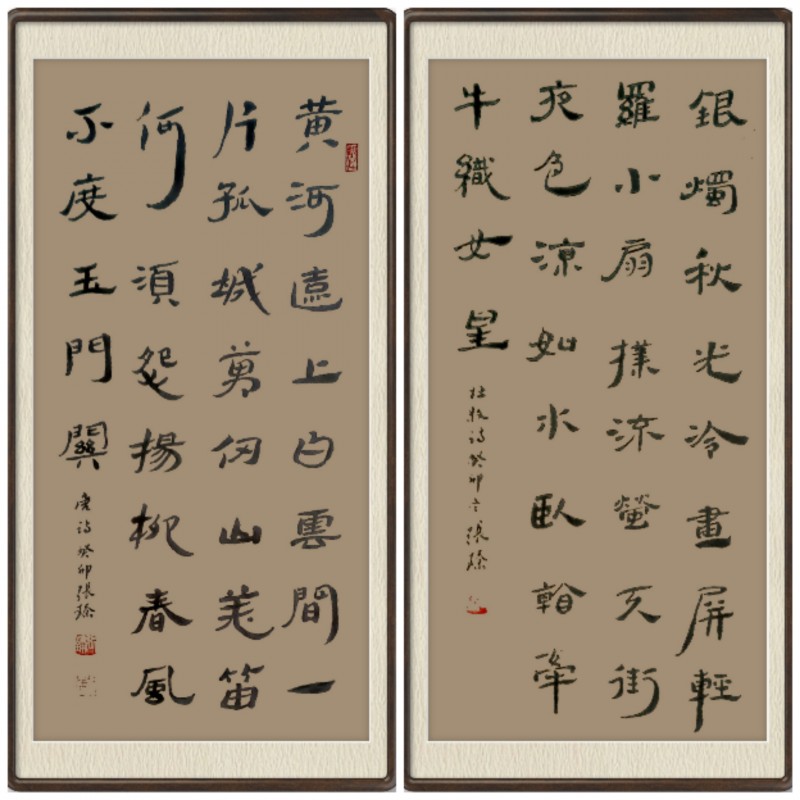 黄河遠上白雲間一
片孤城萬仞山羌笛
何須怨揚柳春風
不度玉門關
唐詩癸卯張
銀燭秋光冷畫屏輕
羅小扇撲流螢天街
夜色涼如水臥看牽
牛織女星
杜牧詩癸卯冬張